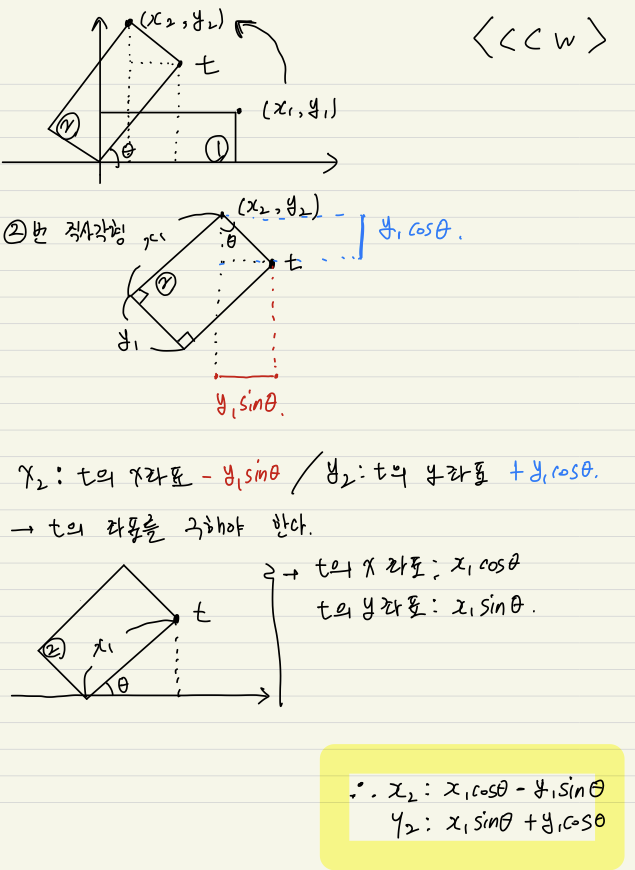 (x₂, y₂)
<CCW>
t
(x₁, y₁)
②
θ
①
(x₂, y₂)
②번 직사각형
x₁
θ
y₁cosθ.
②
t
y₁
y₁sinθ.
x₂: t의 x좌표 - y₁sinθ / y₂: t의 y좌표 + y₁cosθ.
→ t의 좌표를 구해야 한다.
→ t의 x좌표: x₁cosθ
t의 y좌표: x₁sinθ.
t
②
x₁
θ
∴ x₂: x₁cosθ - y₁sinθ
y₂: x₁sinθ + y₁cosθ